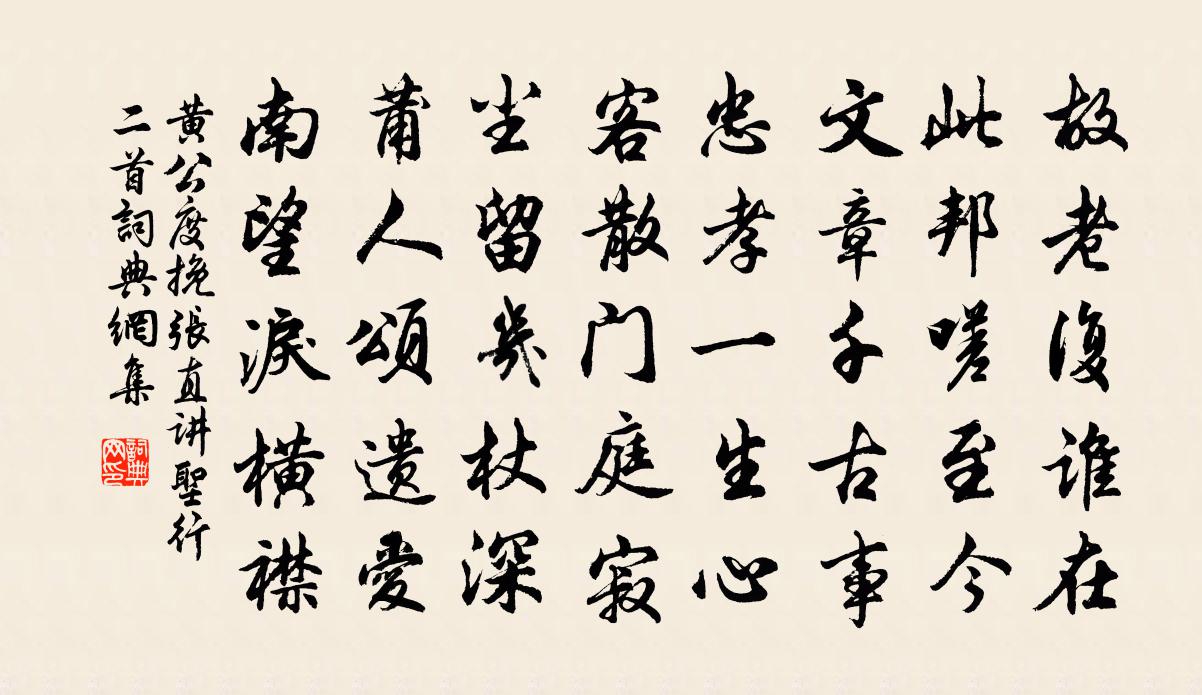 故老復谁在
此邦嗟至今
文章千古事
忠孝一生心
客散门庭寂
尘留几杖深
莆人頌遗愛
南望淚橫襟
黄公度挽張直讲聖行
二首詞典網集
詞典網印